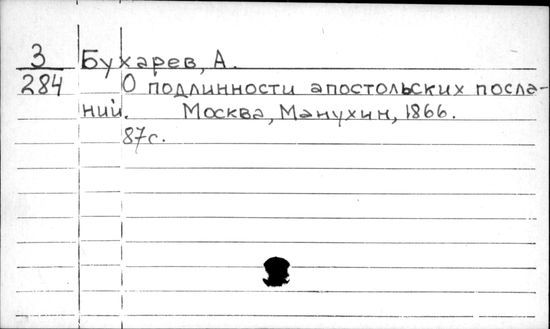 3 Бухарев, А.
284 О подлинности апостольских посла-
ний. Москва, Манухин, 1866.
87с.